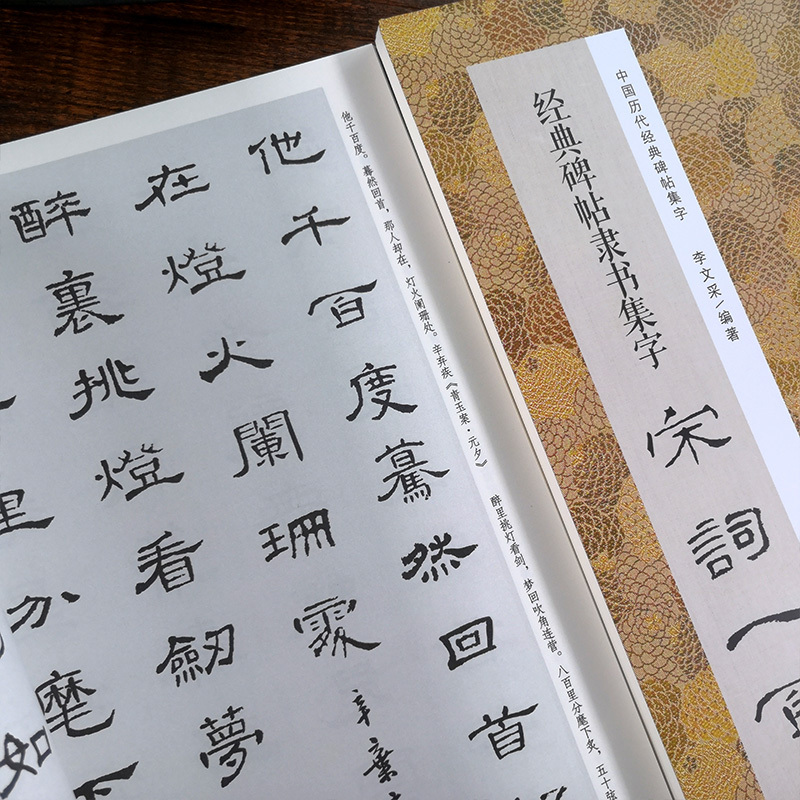 他千百度驀然回首
在燈火闌珊處
辛棄
醉裏挑燈看劒夢
里分麾下
如
他千百度。蓦然回首，那人却在，灯火阑珊处。辛弃疾《青玉案·元夕》
醉里挑灯看剑，梦回吹角连营。八百里分麾下炙，五十弦
中国历代经典碑帖集字
李文采／编著
经典碑帖隶书集字
宋詞一